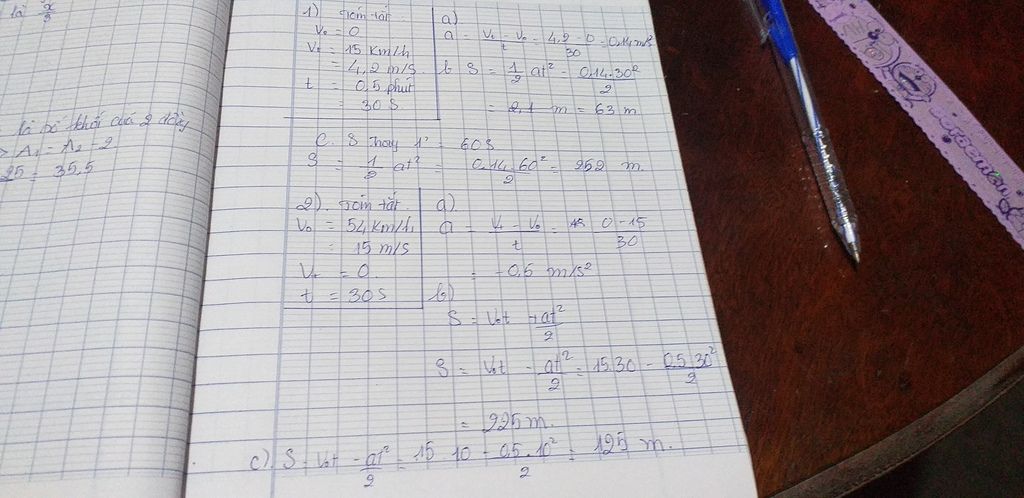 là x/3
là số khối của 2 dãy
> A₁ - A₂ = 2
25 = 35.5
1) Tóm tắt
V₀ = 0
Vₜ = 15 km/h
= 4,2 m/s
t = 0,5 phút
= 30 s
a)
a = (Vₜ - V₀)/t = (4,2 - 0)/30 = 0,14 m/s
b S = 1/2 at² = (0,14.30²)/2
= 2,1 m = 63 m
C. S 1' = 60s
S = 1/2 at² = (0,14.60²)/2 = 252 m.
2). Tóm tắt
V₀ = 54 km/h
= 15 m/s
Vₜ = 0
t = 30s
a).
a = (Vₜ - V₀)/t = (0 - 15)/30
= -0,5 m/s²
b)
S = V₀t + at²/2
S = V₀t - at²/2 = 15.30 - (0,5.30²)/2
= 225 m.
c) S = V₀t - at²/2 = 15.10 - (0,5.10²)/2 = 125 m.
Doraemon